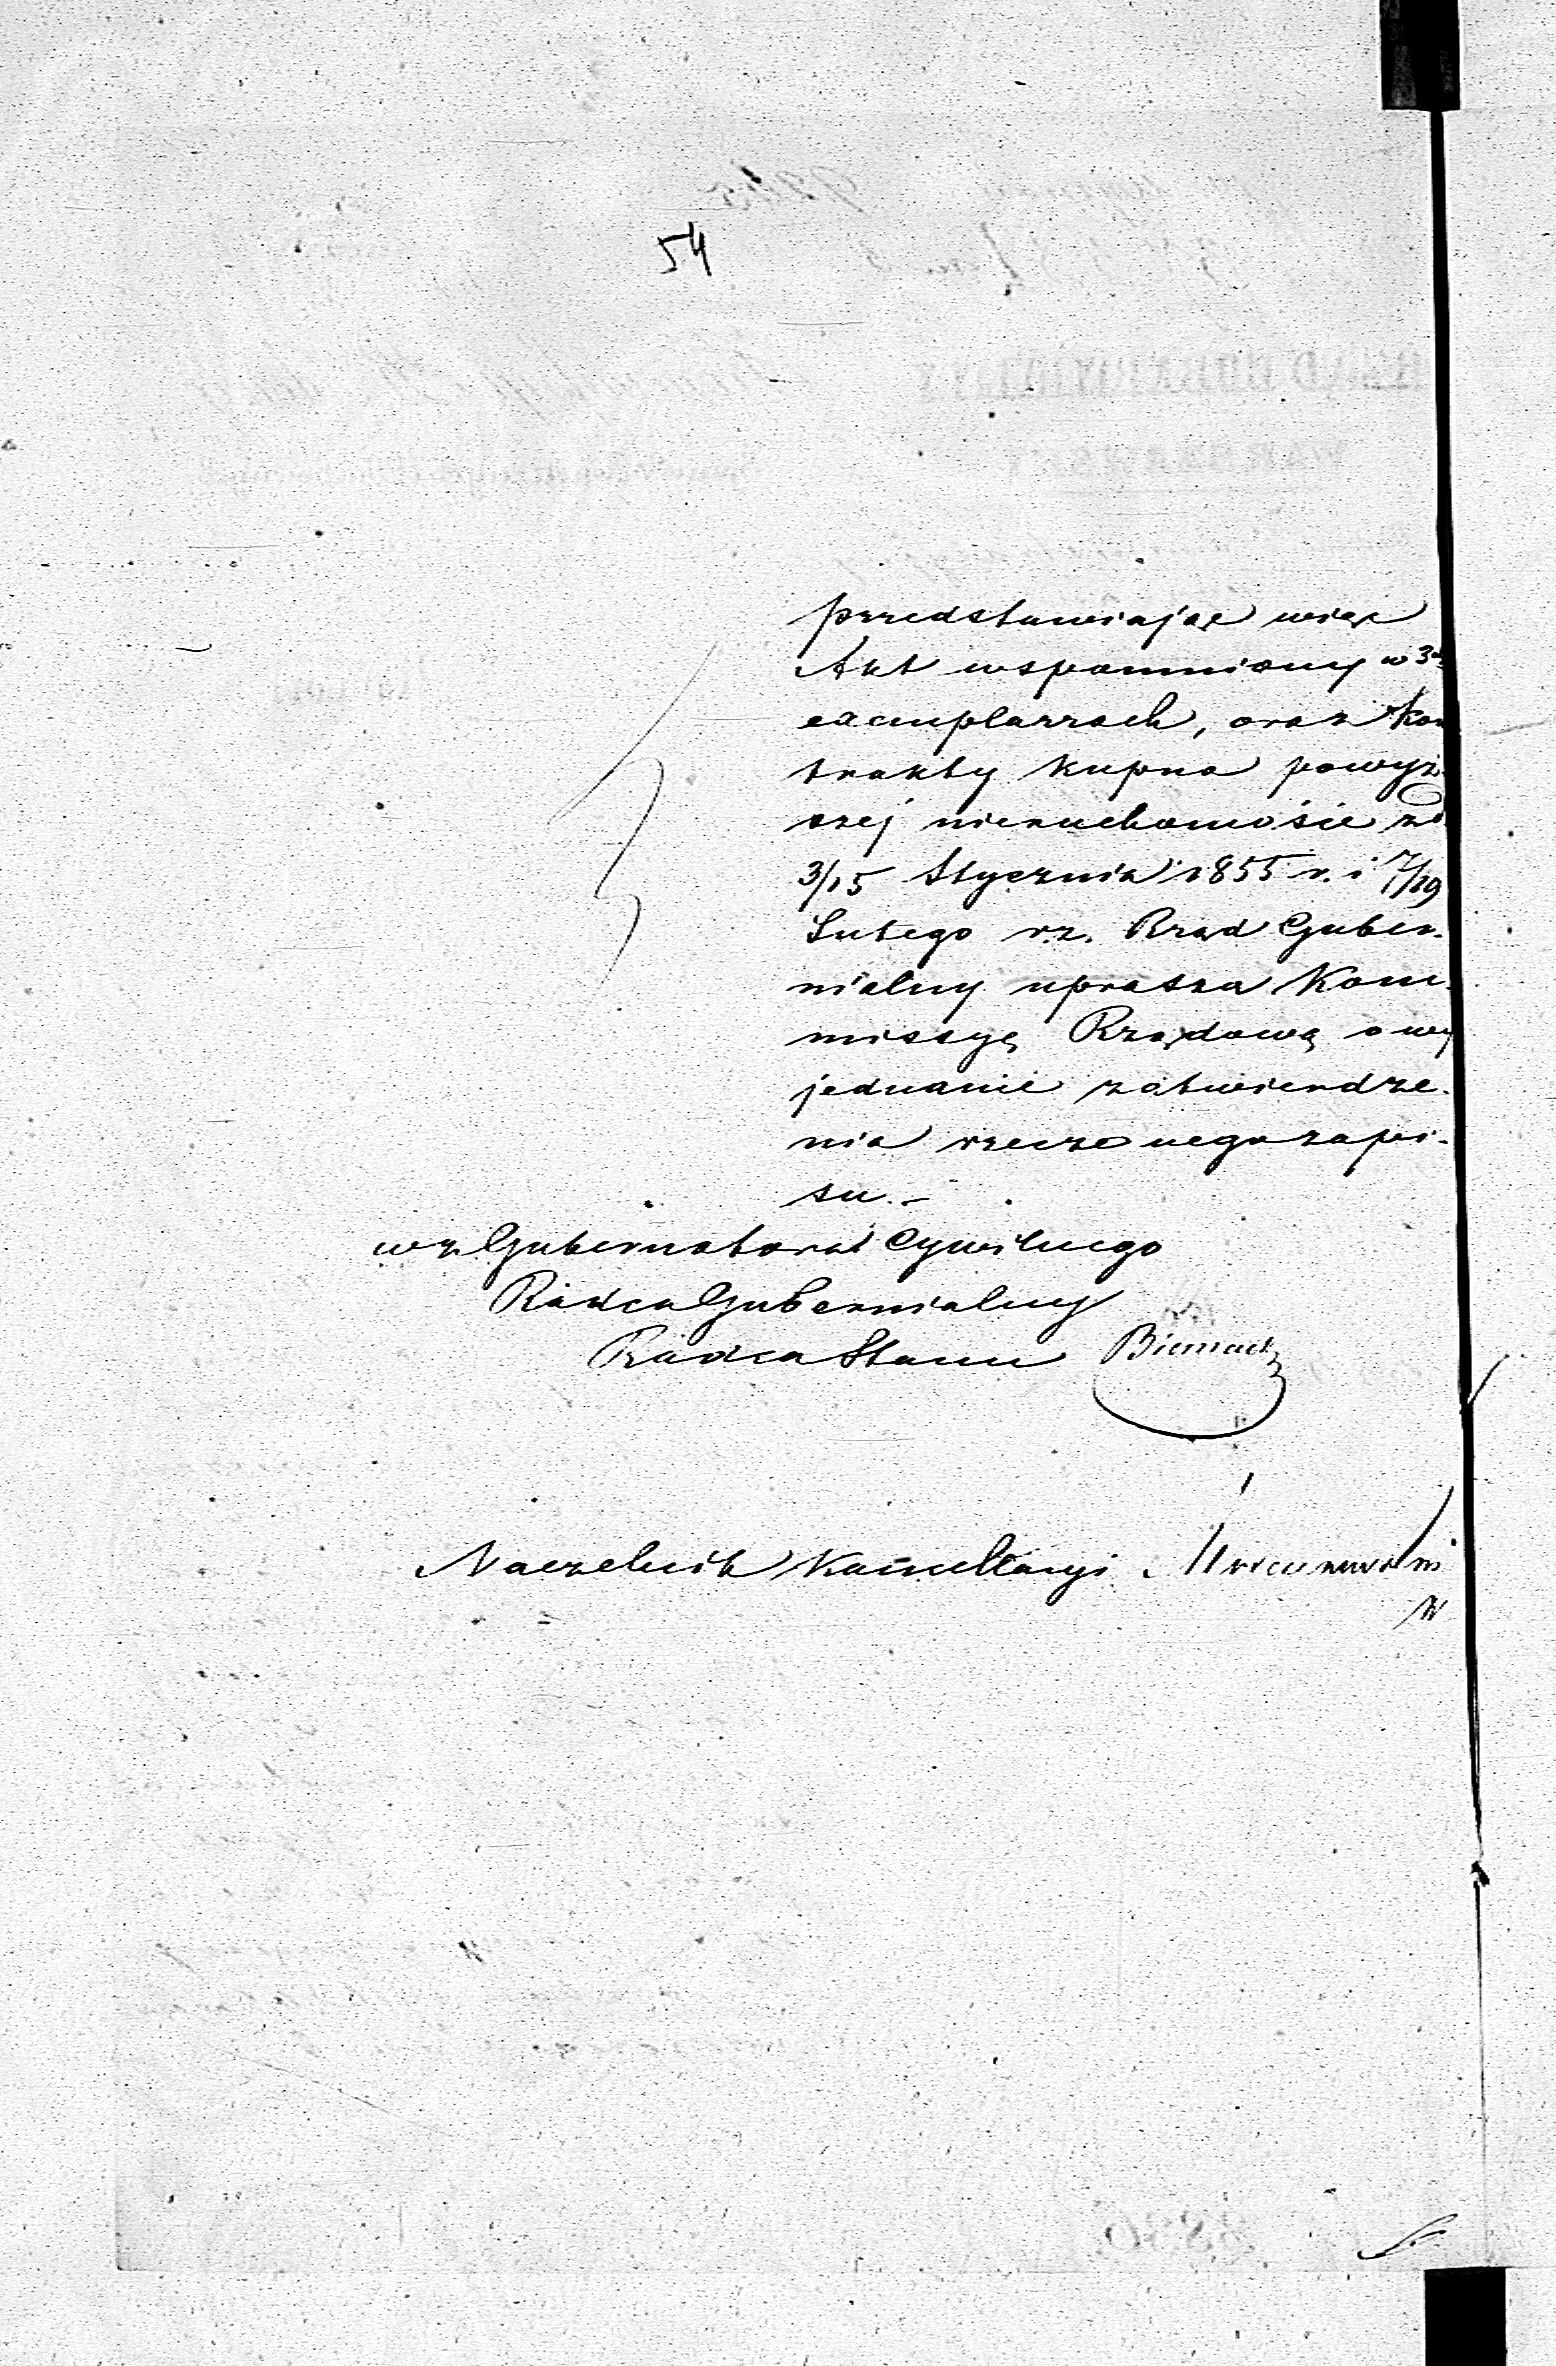 54
przedstawiając więc
Akt wspomniony w 3ch
exemplarzach, oraz kon
trakty kupna powyż-
szej nieruchomości zd.
3/15 Stycznia 1855 r. i 7/19
Lutego r.z. Rząd Guber-
nialny uprasza Kom-
missyę Rządową o wy
jednanie zatwierdze-
nia rzeczonego zapi-
su.-
wz. Gubernatora Cywilnego
Radca Gubernialny
Radca Stanu Biernacki
Naczelnik Kancellaryi